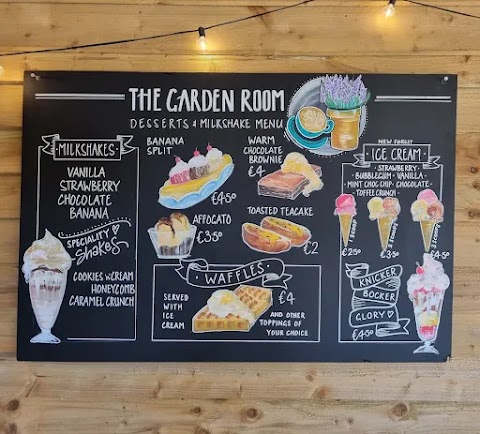 THE GARDEN ROOM
DESSERTS & MILKSHAKE MENU
MILKSHAKES
VANILLA
STRAWBERRY
CHOCOLATE
BANANA
SPECIALITY
Shakes
COOKIES N CREAM
HONEYCOMB
CARAMEL CRUNCH
BANANA
SPLIT
€4.50
WARM
CHOCOLATE
BROWNIE
€4
AFFOCATO
€3.50
TOASTED TEACAKE
€2
WAFFLES
SERVED
WITH
ICE
CREAM
€4
AND OTHER
TOPPINGS OF
YOUR CHOICE
NEW FOREST
ICE CREAM
· STRAWBERRY ·
· BUBBLEGUM · VANILLA ·
· MINT CHOC CHIP · CHOCOLATE ·
· TOFFEE CRUNCH ·
1 SCOOP
2 SCOOPS
3 SCOOPS
€2.50
€3.50
€4.50
KNICKER
BOCKER
GLORY
€4.50